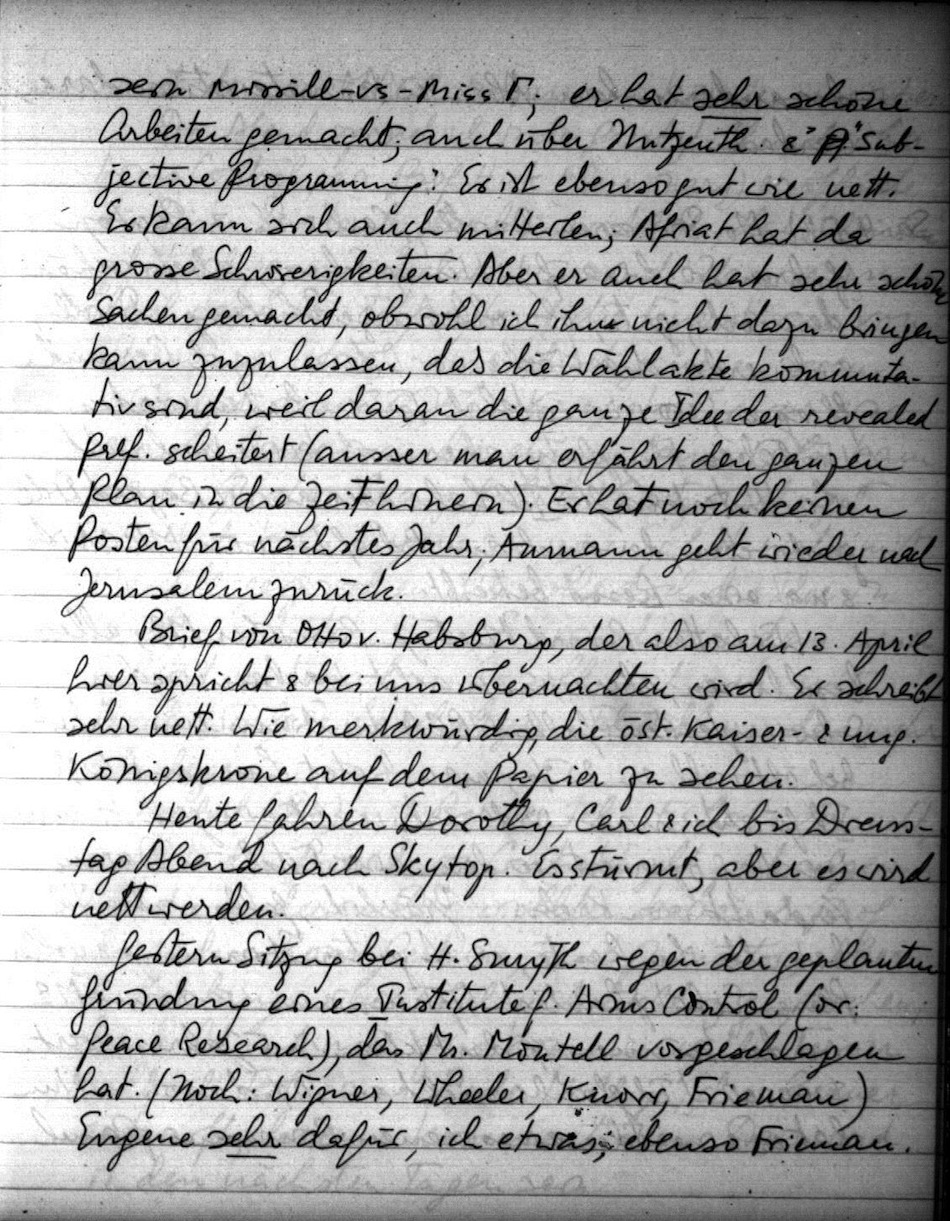 sein Missile-vs-Miss Γ; er hat sehr schöne
Arbeiten gemacht, auch über Nutzenth. & "Sub-
jective Programming". Er ist ebenso gut wie nett.
Er kann sich auch mitteilen; Afriat hat da
grosse Schwierigkeiten. Aber er auch hat sehr schöne
Sachen gemacht, obwohl ich ihn nicht dazu bringen
kann zuzulassen, das die Wahlakte kommuta-
tiv sind, weil daran die ganze Idee der revealed
pref. scheitert (ausser man erfährt den ganzen
Plan in die Zeit hinein). Er hat noch keinen
Posten für nächstes Jahr; Aumann geht wieder nach
Jerusalem zurück.
Brief von Otto v. Habsburg, der also am 13. April
hier spricht & bei uns übernachten wird. Er schreibt
sehr nett. Wie merkwürdig, die öst. Kaiser- & ung.
Königskrone auf dem Papier zu sehen.
Heute fahren Dorothy, Carl & ich bis Diens-
tag Abend nach Skytop. Es stürmt, aber es wird
nett werden.
Gestern Sitzung bei H. Smyth wegen der geplanten
Gründung eines Institute f. Arms Control (or:
Peace Research), das Mr. Montell vorgeschlagen
hat. (Noch: Wigner, Wheeler, Knorr, Frieman)
Eugene sehr dafür, ich etwas; ebenso Frieman.